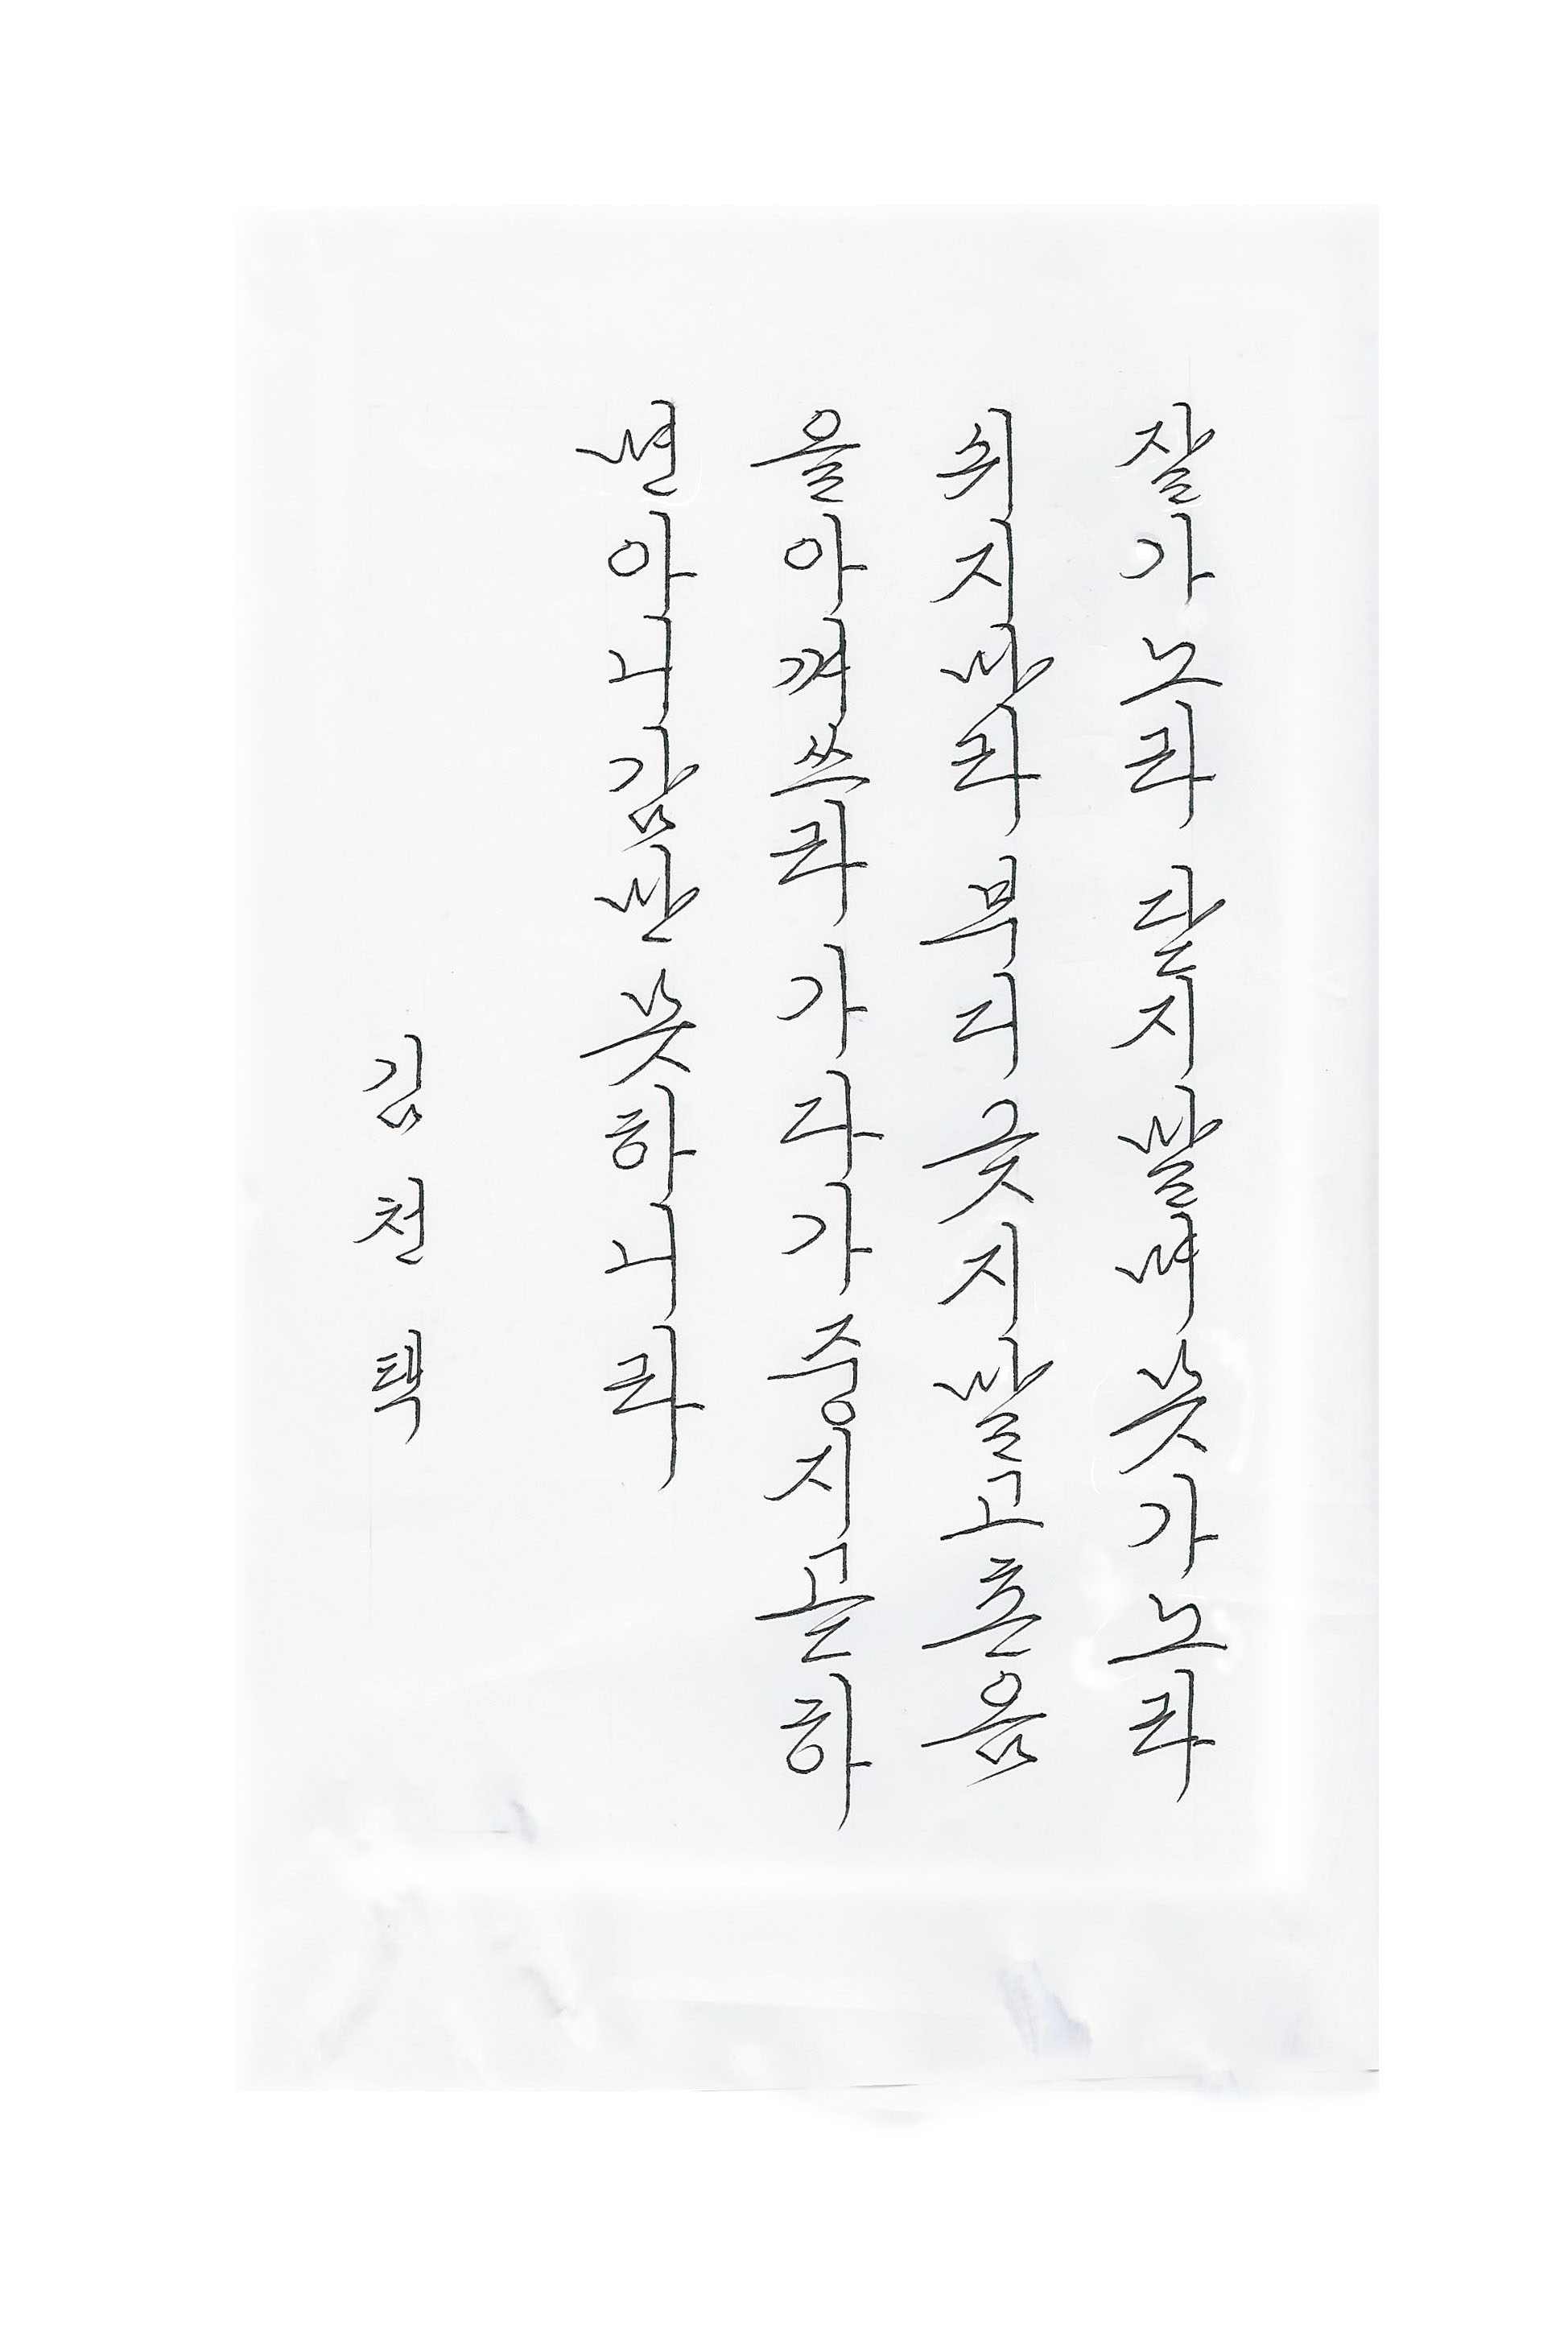 잘가노라 닫지말며못가노라
쉬지마라 부디긋지말고촌음
을아껴쓰라 가다가중지곧하
면아니감만 못하니라
김천택